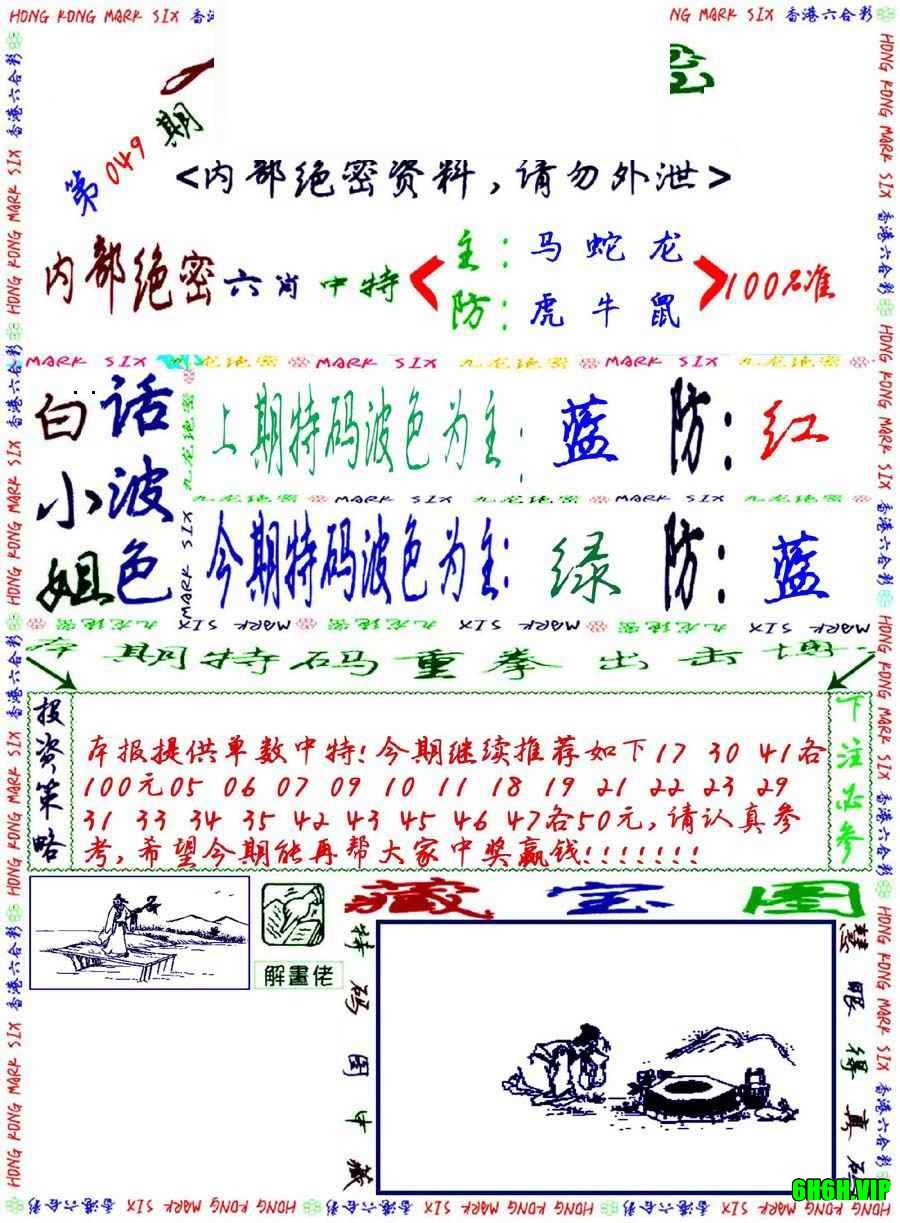 HONG KONG MARK SIX 香港六合彩
第049期
<内部绝密资料,请勿外泄>
内部绝密六肖中特
主:马蛇龙
防:虎牛鼠
100%准
MARK SIX 九龙绝密 MARK SIX 九龙绝密 MARK SIX 九龙绝密
白话
小波
姐色
上期特码波色为主:蓝 防:红
九龙绝密 MARK SIX 九龙绝密 MARK SIX 九龙绝密
今期特码波色为主:绿 防:蓝
本期特码重拳出击博
投资策略
本报提供单数中特!今期继续推荐如下17 30 41各
100元05 06 07 09 10 11 18 19 21 22 23 29
31 33 34 35 42 43 45 46 47各50元,请认真参
考,希望今期能再帮大家中奖赢钱!!!!!!!
下注必参
解畫佬
藏宝图
特码图中藏
慧眼得真码
6H6H.VIP